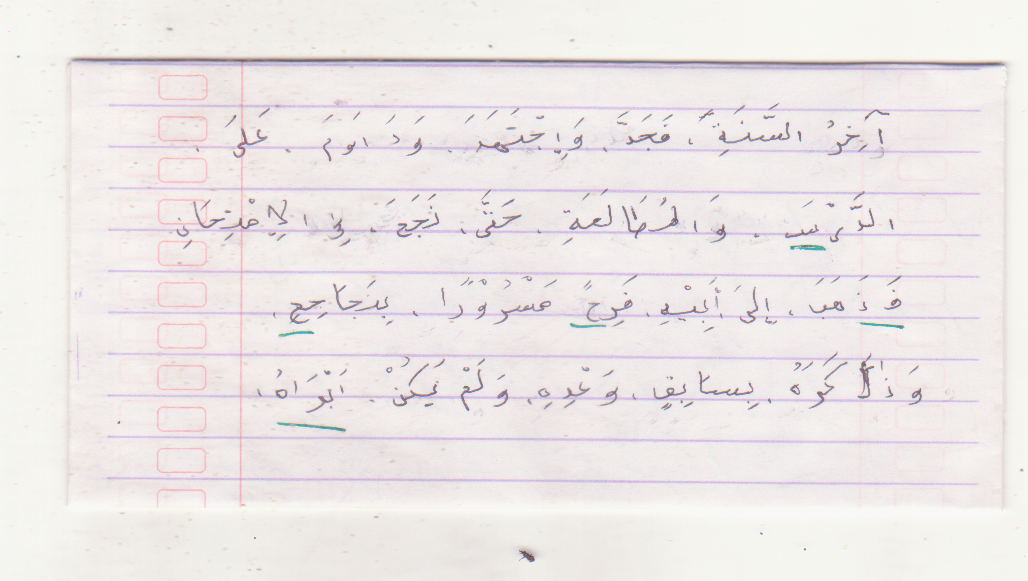 آخِرُ السَّنَةِ، فَجَدَّ. وَاِجْتَهَدَ. وَدَاوَمَ. عَلَى.
الدَّرْسَ. وَالمُطَالَعَةِ. حَتَّى. نَجَحَ. فِي الِامْتِحَانِ
وَذَهَبَ. إِلَى أَبِيْهِ. فَرِحً مَسْرُوْرًا. بِنَجَاحِعِ.
وَذَاكَرَهُ. بِسَابِقِ. وَعْدِهِ. وَلَمْ يَكُنْ. اَبْوَاهُ.